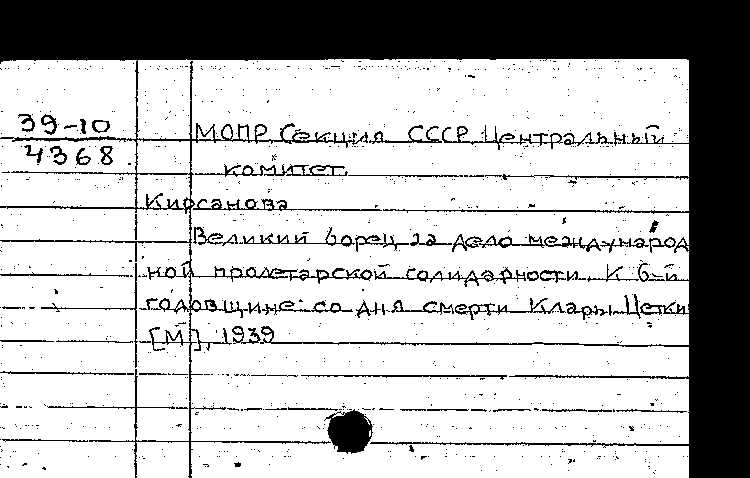 39-10
4368
МОПР. Секция СССР. Центральный
комитет.
Кирсанова
Великий борец за дело международ
ной пролетарской солидарности. К 6-й
годовщине со дня смерти Клары Цетки
[М], 1939